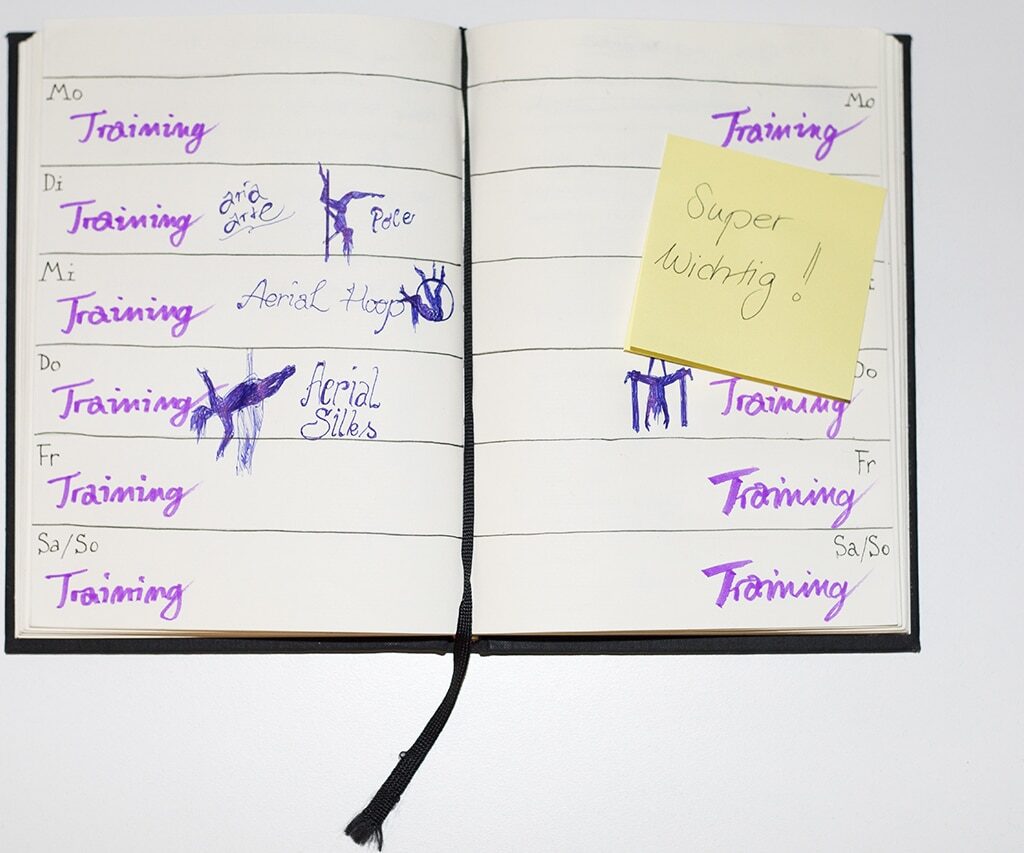 Mo
Training
Di
Training
aria
arte
Pole
Mi
Training
Aerial Hoop
Do
Training
Aerial
Silks
Fr
Training
Sa/So
Training
Mo
Training
Super
Wichtig!
Training
Fr
Training
Sa/So
Training